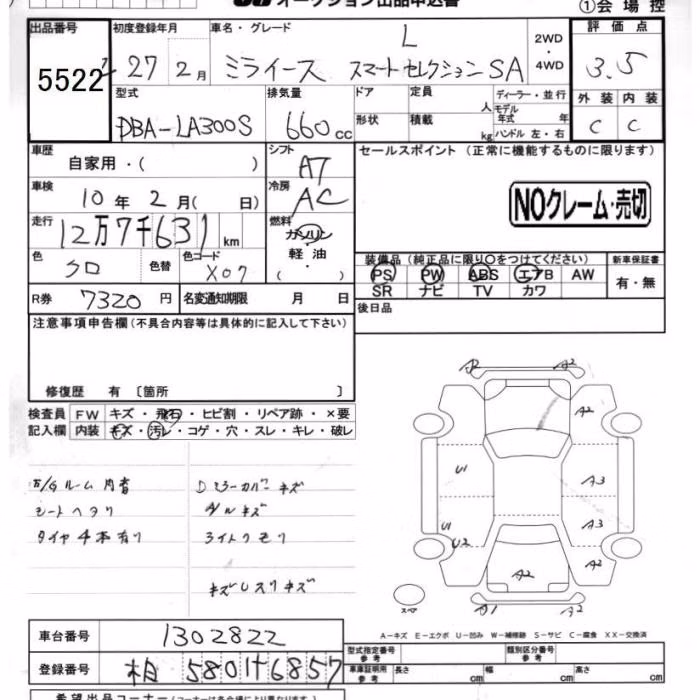 オークション出品申込書
①会場控
出品番号
5522
初度登録年月
27 2月
車名・グレード
ミライース L スマートセレクションSA
2WD
・
4WD
評価点
3.5
型式
DBA-LA300S
排気量
660cc
ドア
形状
定員 人
積載 kg
ディーラー・並行
モデル年式 年
ハンドル 左・右
外装
内装
C
C
車歴
自家用・( )
シフト
AT
セールスポイント (正常に機能するものに限ります)
NOクレーム・売切
車検
10年2月( 日)
冷房
AC
走行
12万7千631km
燃料
ガソリン
軽油
( )
色
クロ
色替
色コード
X07
装備品 (純正品に限り○をつけてください)
PS
PW
ABS
エアB
AW
SR
ナビ
TV
カワ
新車保証書
有・無
R券
7320円
名変通知期限 月 日
後日品
注意事項申告欄(不具合内容等は具体的に記入して下さい)
修復歴 有 〔箇所 〕
検査員
記入欄
FW
キズ・飛石・ヒビ割・リペア跡・×要
内装
キズ・汚レ・コゲ・穴・スレ・キレ・破レ
シートヘタリ
タイヤ4本有り
Dミラーカバーキズ
A/Wキズ
ライトクモリ
A2
A2
A2
U1
A3
U1
A3
U2
A2
A2
スペア
A1
A2
A-キズ E-エクボ U-凹み W-補修跡 S-サビ C-腐食 XX-交換済
車台番号
1302822
登録番号
型式指定番号
参考
類別区分番号
参考
車庫証明用
参考
長さ cm
幅 cm
高さ cm
希望出品コーナー